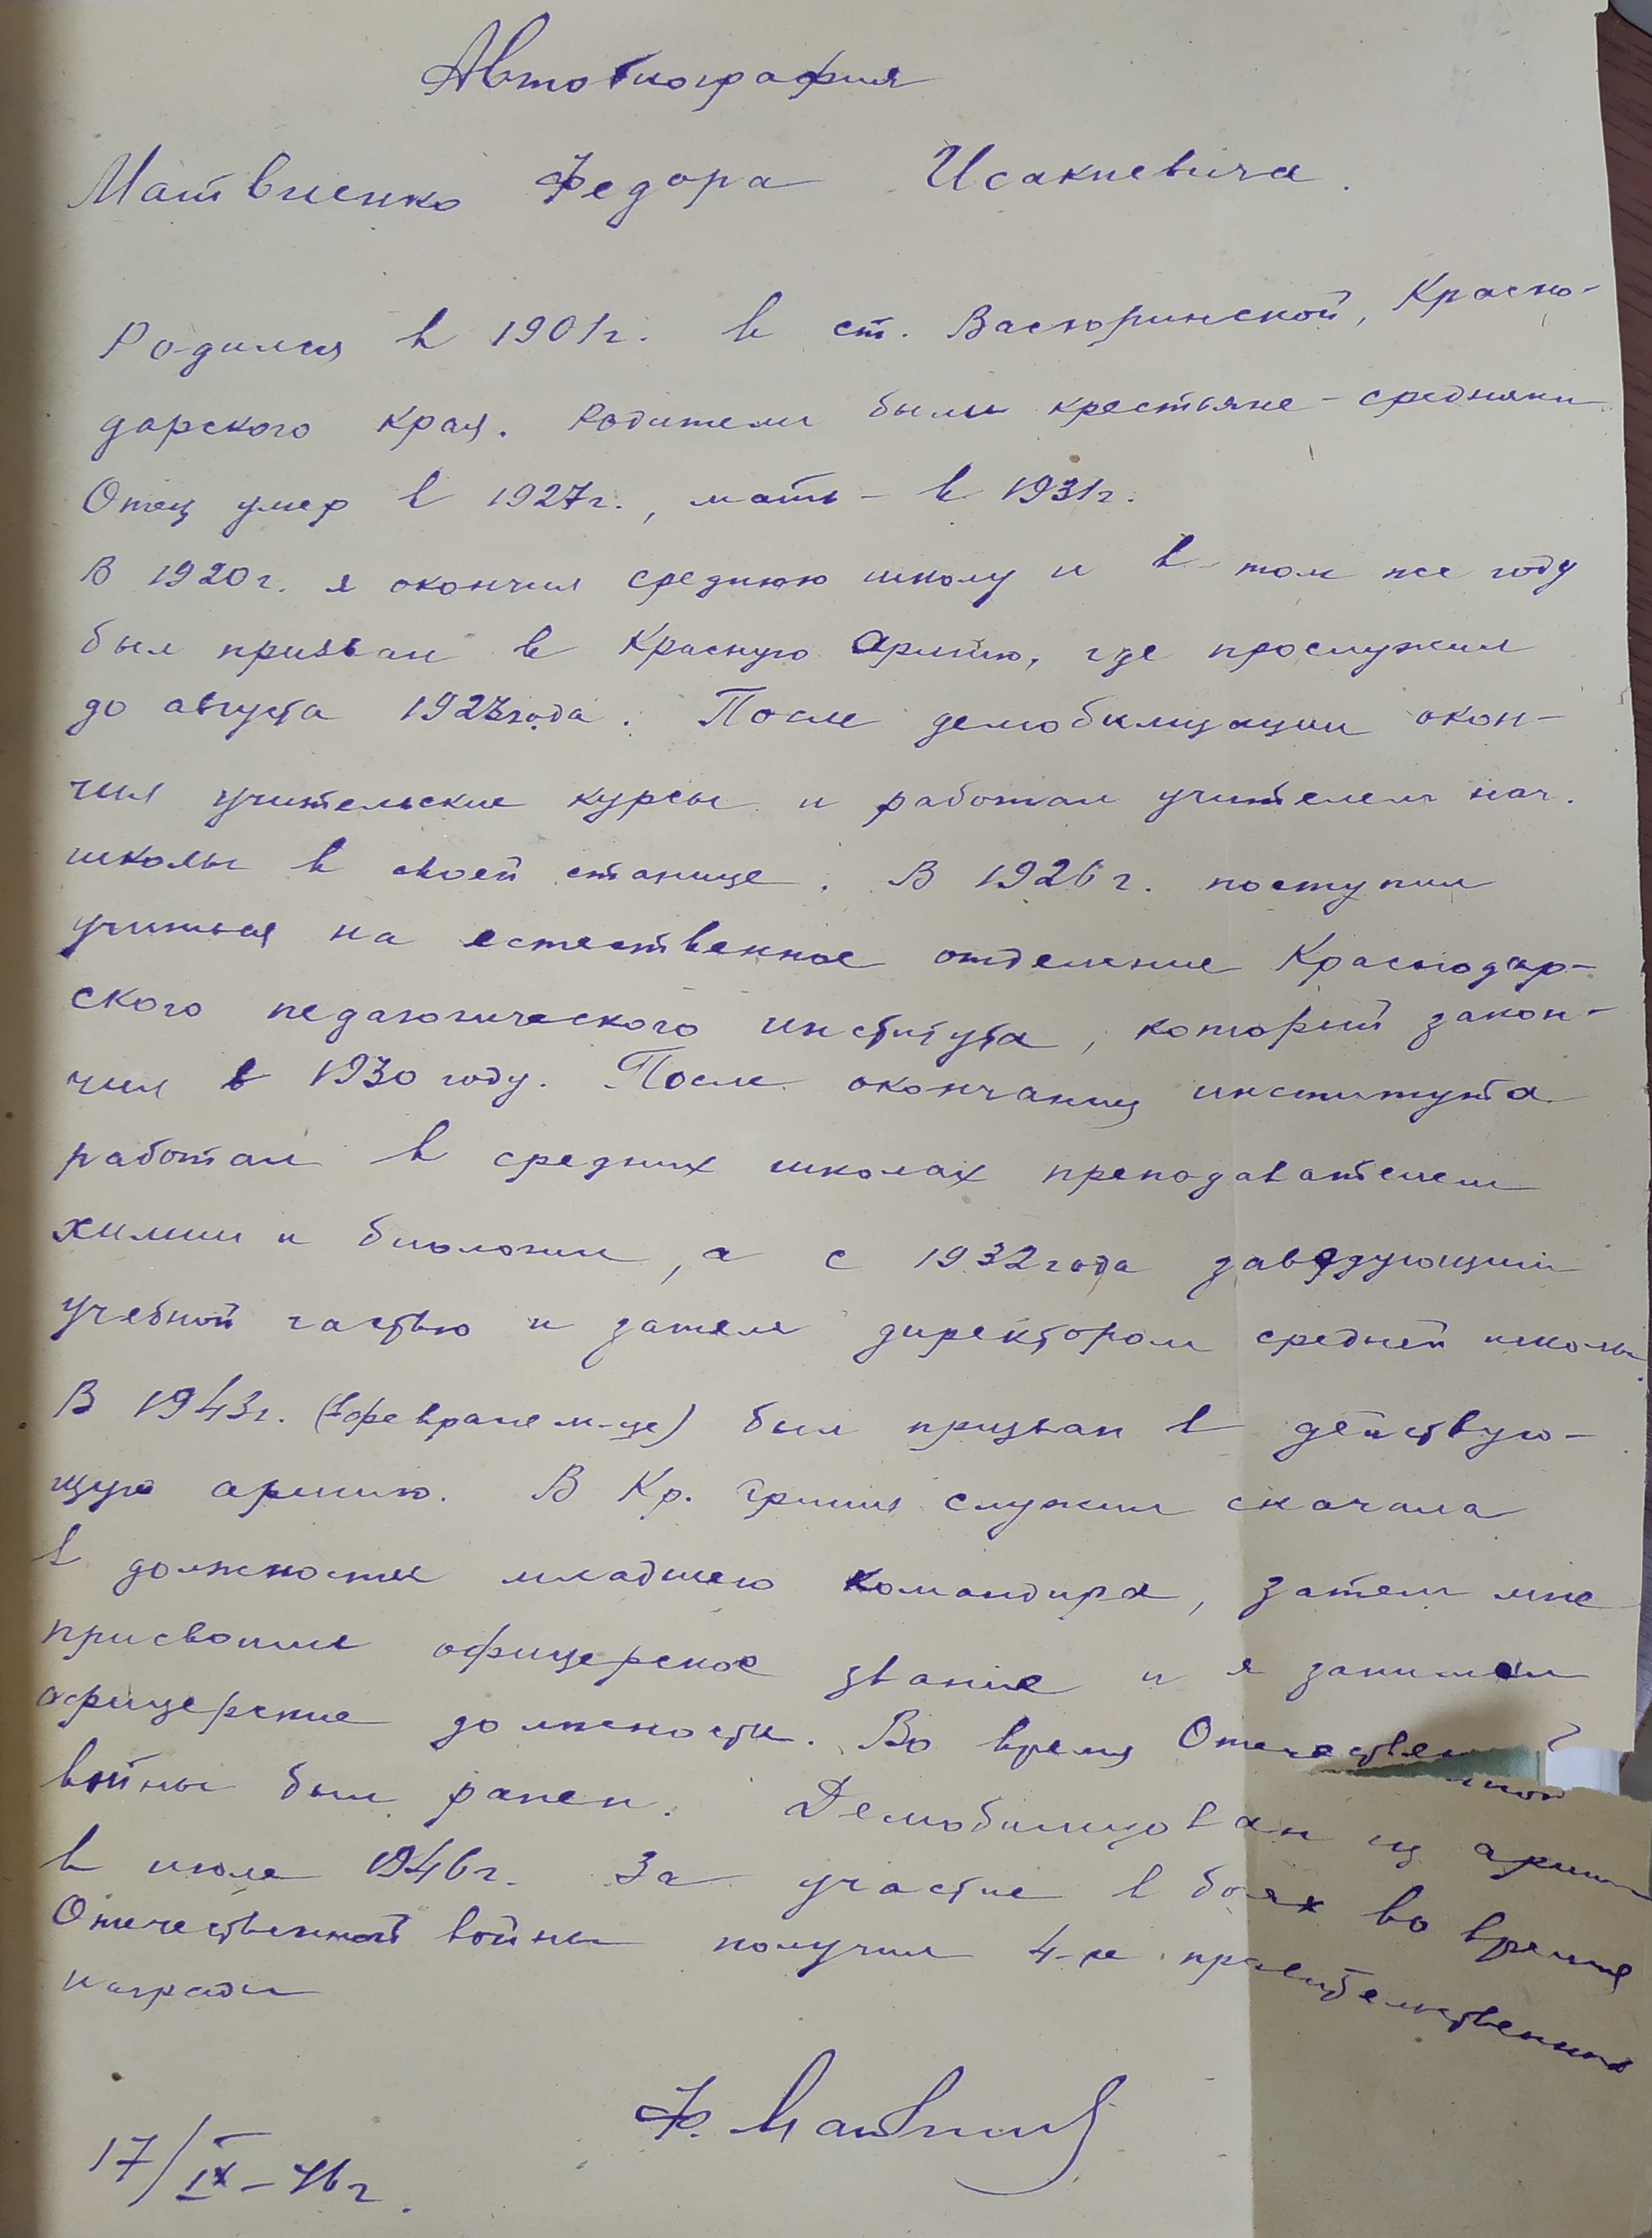 Автобиография
Матвиенко Федора Исакиевича.
Родился в 1901г. в ст. Васюринской, Красно-
дарского края. Родители были крестьяне-средняки.
Отец умер в 1927г., мать - в 1931г.
В 1920г. я окончил среднюю школу и в том же году
был призван в Красную армию, где прослужил
до августа 1923года. После демобилизации окон-
чил учительские курсы и работал учителем нач.
школы в своей станице. В 1926г. поступил
учиться на естественное отделение Краснодар-
ского педагогического института, который закон-
чил в 1930 году. После окончания института
работал в средних школах преподавателем
химии и биологии, а с 1932года заведующий
учебной частью и затем директором средней школы.
В 1943г. (в феврале м-це) был призван в действую-
щую армию. В Кр. армии служил сначала
в должности младшего командира, затем мне
присвоили офицерское звание и я занимал
офицерские должности. Во время Отечественной
войны был ранен. Демобилизован из армии
в июле 1946г. За участие в боях во время
Отечественной войны получил 4-е правительственных
награды
Ф. Матвиенко
17/IX-46г.